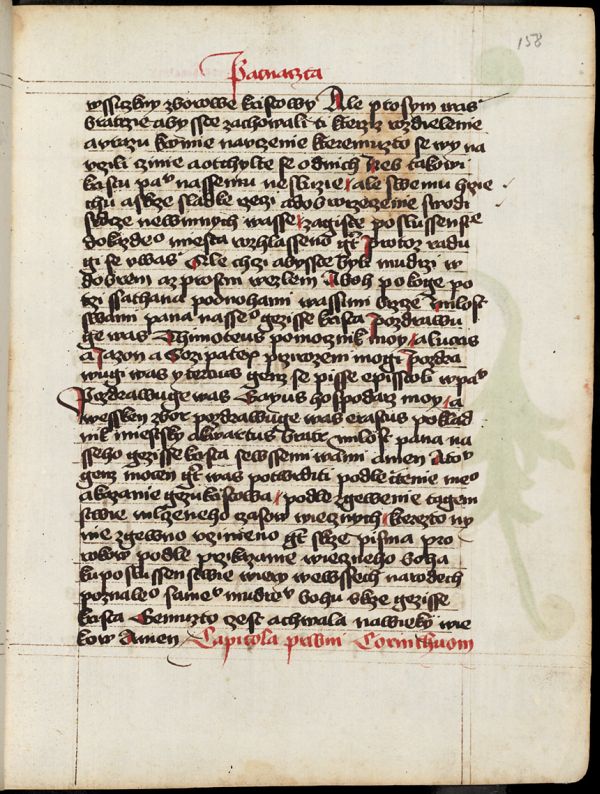 158
Patnaczta
wssiczkny zborowe kristowy Ale prosym was
bratrzie abysste zachowali ti kterziz rozdielenie
a vrazu krymie navczenie kteremuzto se wy na
vczili czinie a otchylte se od nich Neb takowi
kristu pav nassemu nesluzie ale swemu brzie
chu a skrze sladke rzeczi a dobrorzeczenie swodi
srdcze newinnych wasse zagiste poslussenstwie
do kazdeo miesta rozhlasseno gt Protoz radu
gi se vwas Ale chczi abysste byli mudrzi w
dobrem a sprostni wezlem A boh pokoge po
trzi ssathana pod nohami wassimi brzie Milost
s wami pana nasseo gezisse krista Pozdrawu
ge was Thimoteus pomocznik moy a lucas
a Jazon a Sozipater przirozeni mogi Pozdra
wugi was y terdus genz sem pisse episstoli w pav
Pozdrawuge was Gayus hospodarz moy a
wessken zbor pozdrawuge was erastus poklad
nik miestsky a kwartus bratr Milost pana na
sseho gezisse krista se wssemi wami amen A tov
genz moczen gt was potwrditi podle cztenie meo
a kazanie gezukristowa podle zgewenie tagem
stwie mlczeneho czasow wiecznych kterezto ny
nie zgewno vczinieno gt skrze pisma pro
rokow podle przikazanie wieczneho boha
ku poslussenstwie wiery we wssech narodech
poznaleo samev mudrev bohu skrze gezisse
krista Gemuzto gest a chwala na wieky wie
kow Amen Capitola prwni Corinthuom